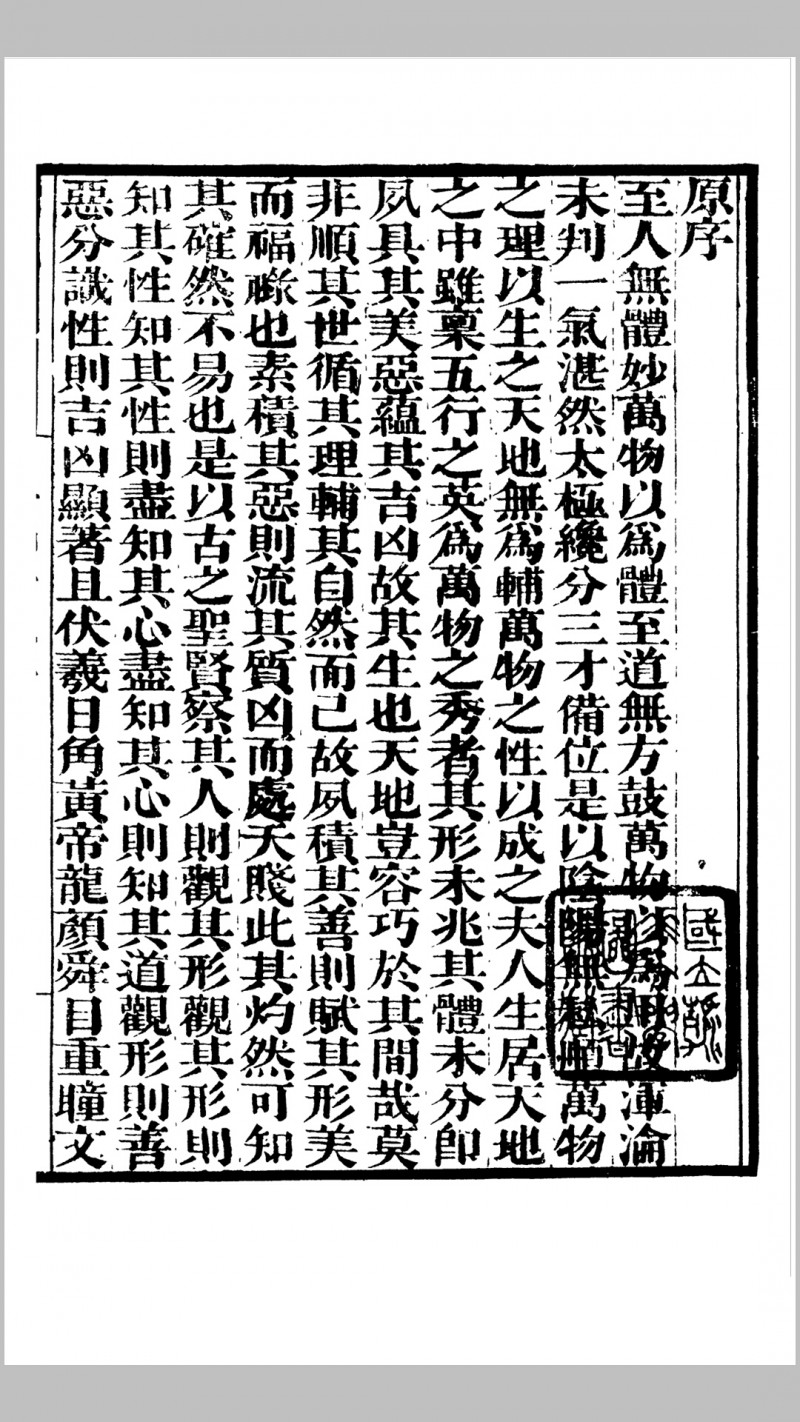 原序
至人無體妙萬物以爲體至道無方鼓萬物以爲用故渾淪
未判一氣湛然太極纔分三才備位是以陰陽無私順萬物
之理以生之天地無爲輔萬物之性以成之夫人生居天地
之中雖稟五行之英爲萬物之秀者其形未兆其體未分即
夙具其美惡蘊其吉凶故其生也天地豈容巧於其間哉莫
非順其世循其理輔其自然而已故夙積其善則賦其形美
而福祿也素積其惡則流其質凶而處夭賤此其灼然可知
其確然不易也是以古之聖賢察其人則觀其形觀其形則
知其性知其性則盡知其心盡知其心則知其道觀形則善
惡分識性則吉凶顯著且伏羲日角黃帝龍顏舜目重瞳文
國立